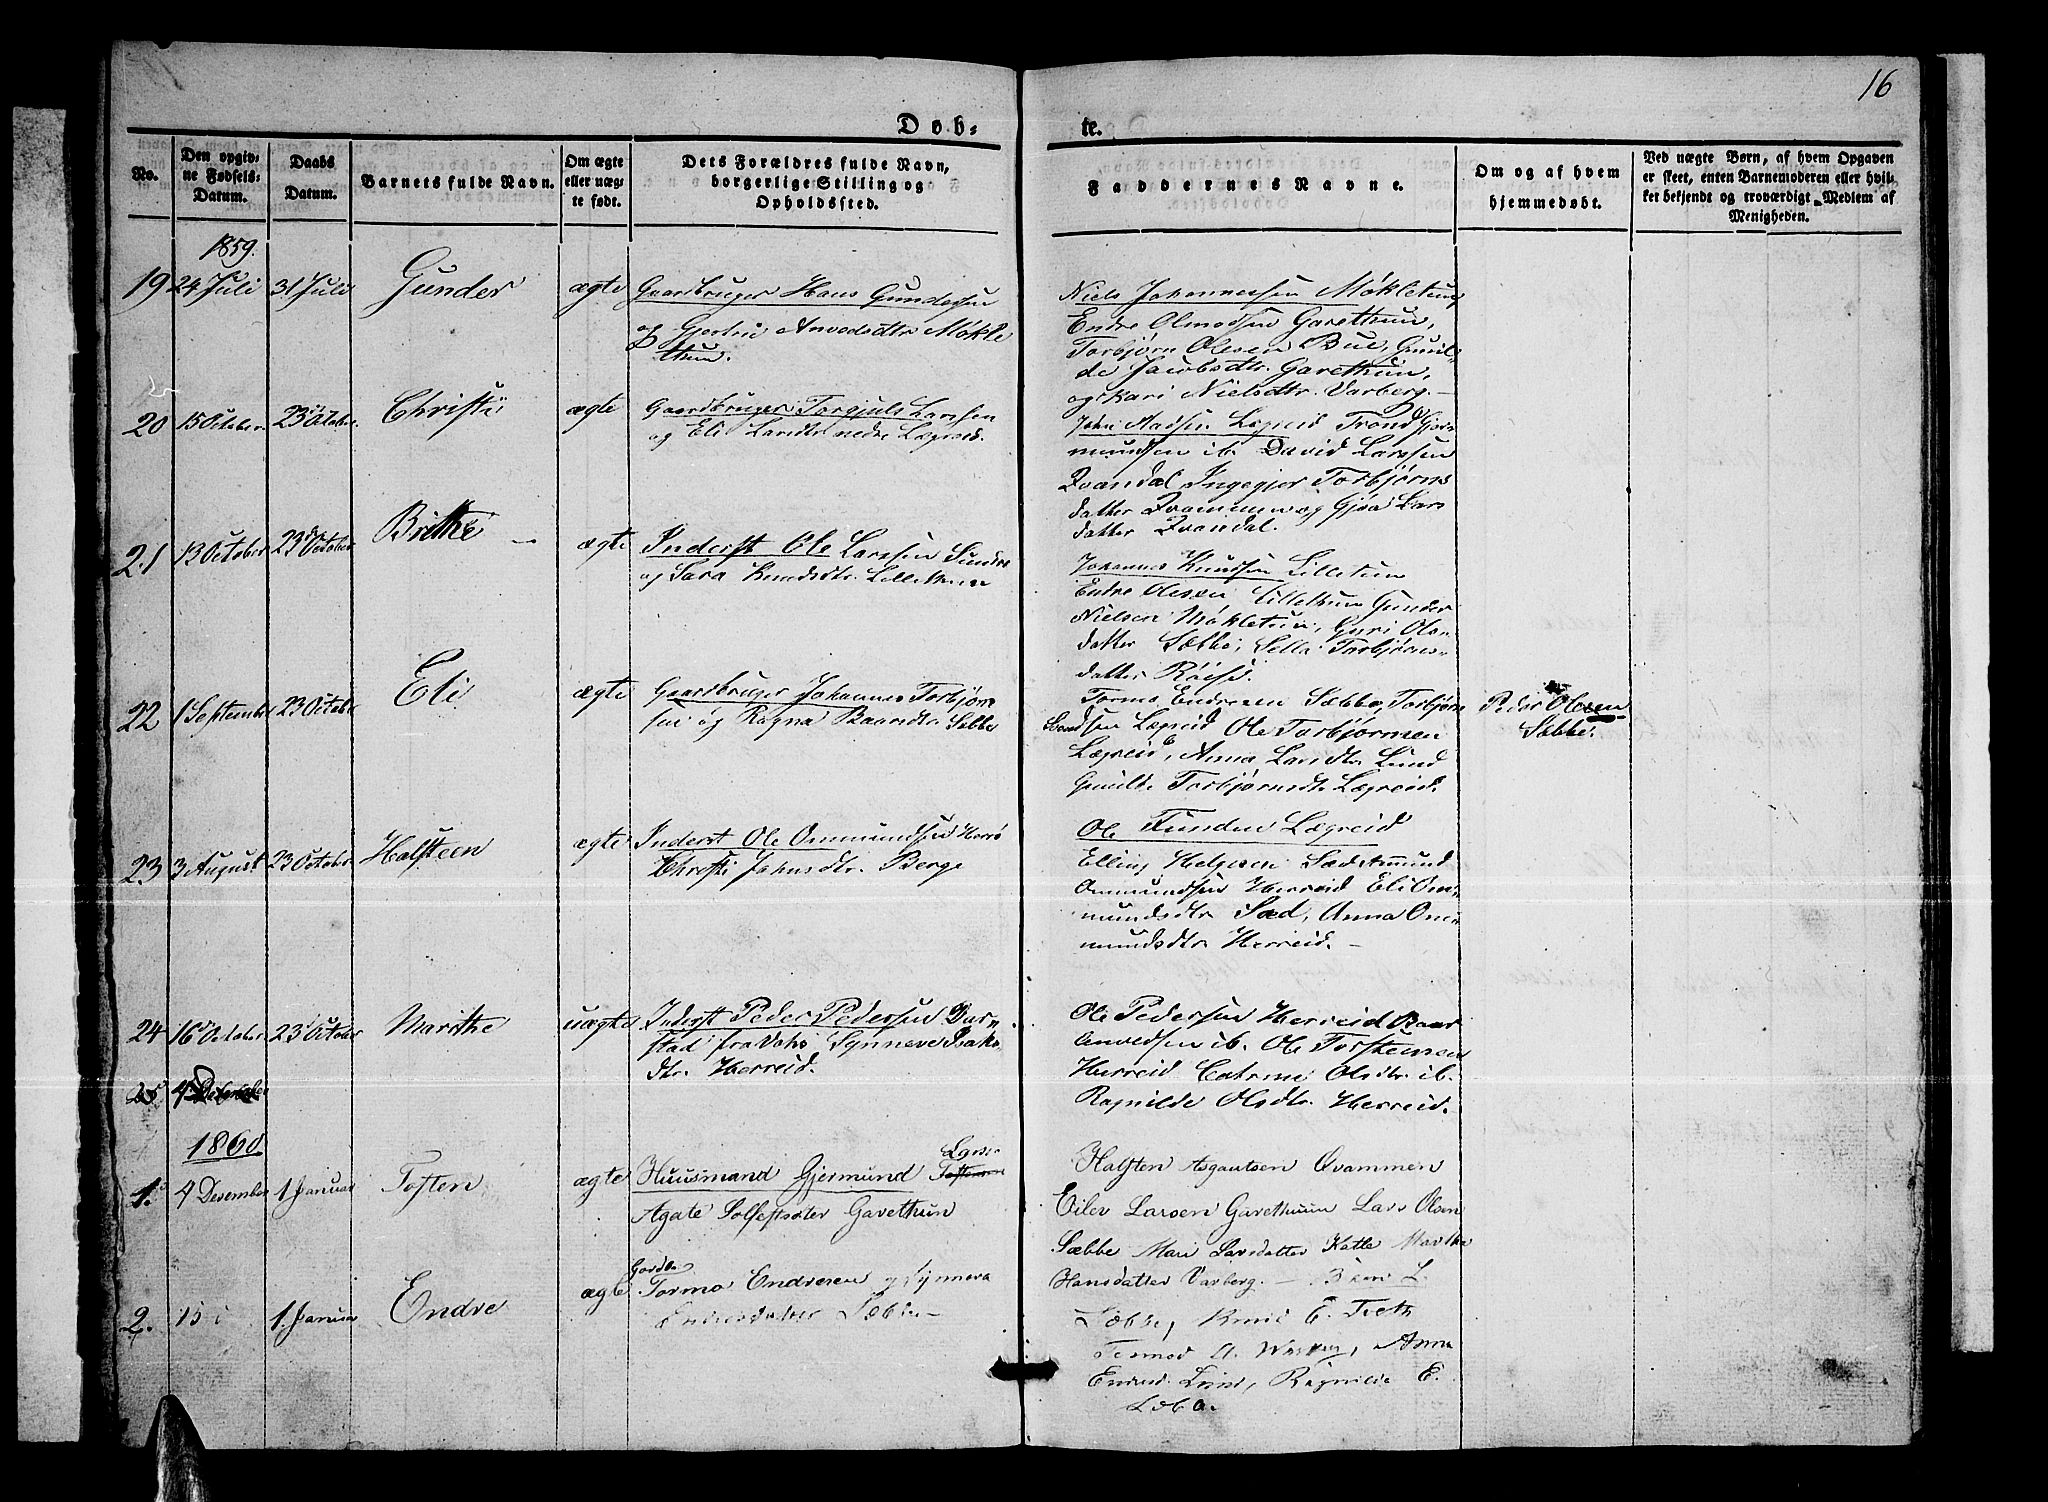 16
Døb-
te.
No.
Den opgiv-
ne Fødsels-
Datum.
Daabs
Datum.
Barnets fulde Navn.
Om ægte
eller uæg-
te født.
Dets Forældres fulde Navn,
borgerlige Stilling og
Opholdssted.
Faddernes Navne.
Om og af hvem
hjemmedøbt.
Ved uægte Børn, af hvem Opgaven
er skeet, enten Barnemoderen eller hvil-
ket bekjendt og troværdigt Medlem af
Menigheden.
1859.
19 24 Juli 31 Juli Gunder ægte Gaardbruger Hans Gundersen
og Gjertrü Anvedsdtr Møkle
thun.
Niels Johannessen Møkletun,
Endre Olmodsen Garetthun,
Torbjørn Olesen Bue, Gunil-
de Jacobsdtr. Garetthun,
og Kari Nielsdtr. Varberg.
20 15 October 23 October Christi ægte Gaardbruger Torgjuls Larssen
og Eli Larsdtr nedre Lægreid.
John Madsen Lægreid Trond Gjer-
mundsen ib. David Larssen
Qvandal Ingegjer Torbjørns
datter Qvammen og Gjøa Lars
datter Qvandal.
21 13 October 23 October Brithe ægte Inderst Ole Larssen Sundre
og Sara Knudsdtr. Lillethun
Johannes Knudsen Lilletun
Endre Olesen Lillethun Gunder
Nielsen Møkletun, Guri Ols-
datter Sæbbe, Sella Torbjørns-
datter Røise.
22 1 September 23 October Eli ægte Gaardbruger Johannes Torbjørn
sen og Ragna Baardtr. Sebbe
Tormo Endresen Sæbbe, Torbjørn
Svendsen Lægreid Ole Torbjørnsen
Lægreid, Anna Larsdtr Lund
Gunilde Torbjørnsdtr Lægreid.
Peder Olsen
Sæbbe.
23 3 August 23 October Halsteen ægte Inderst Ole Ommundsen Herrö
Christi Johnsdtr. Berge
Ole Lægreid
Elling Helgesen Sæd Ammund
Ommundsen Herreid Eli Om-
mundsdtr Sæd, Anna Om-
mundsdtr Herreid.
24 16 October 23 October Marithe uægte Inderst Peder Pedersen Dar-
stad fra Synneve Isaks
dtr. Herreid.
Ole Pedersen Herreid Baar
Anvedsen ib. Ole Torsteinsen
Herreid Catrine Olsdtr. ib.
Ragnilde Olsdtr. Herreid.
25 4 December
1860.
1. 4 Desember 1 Januar Tosten ægte Huusmand Gjermund Torstensen Larse-
Agate Solfestdatter Garetthun
Halsten Asgautsen Qvammen
Eilev Larsen Garetthuun Lars Olsen
Sæbbe Mari Larsdatter Katle Martha
Hansdatter Varberg.
2. 15 1. Januar Endre ægte Gardbr.
Tormo Endresen og Synneva
Endresdatter Sæbbe
L.
Sæbbe, E. Treth
Tormod A. Anna
Endresd. Lund, Ragnilde E.
Sæbø.